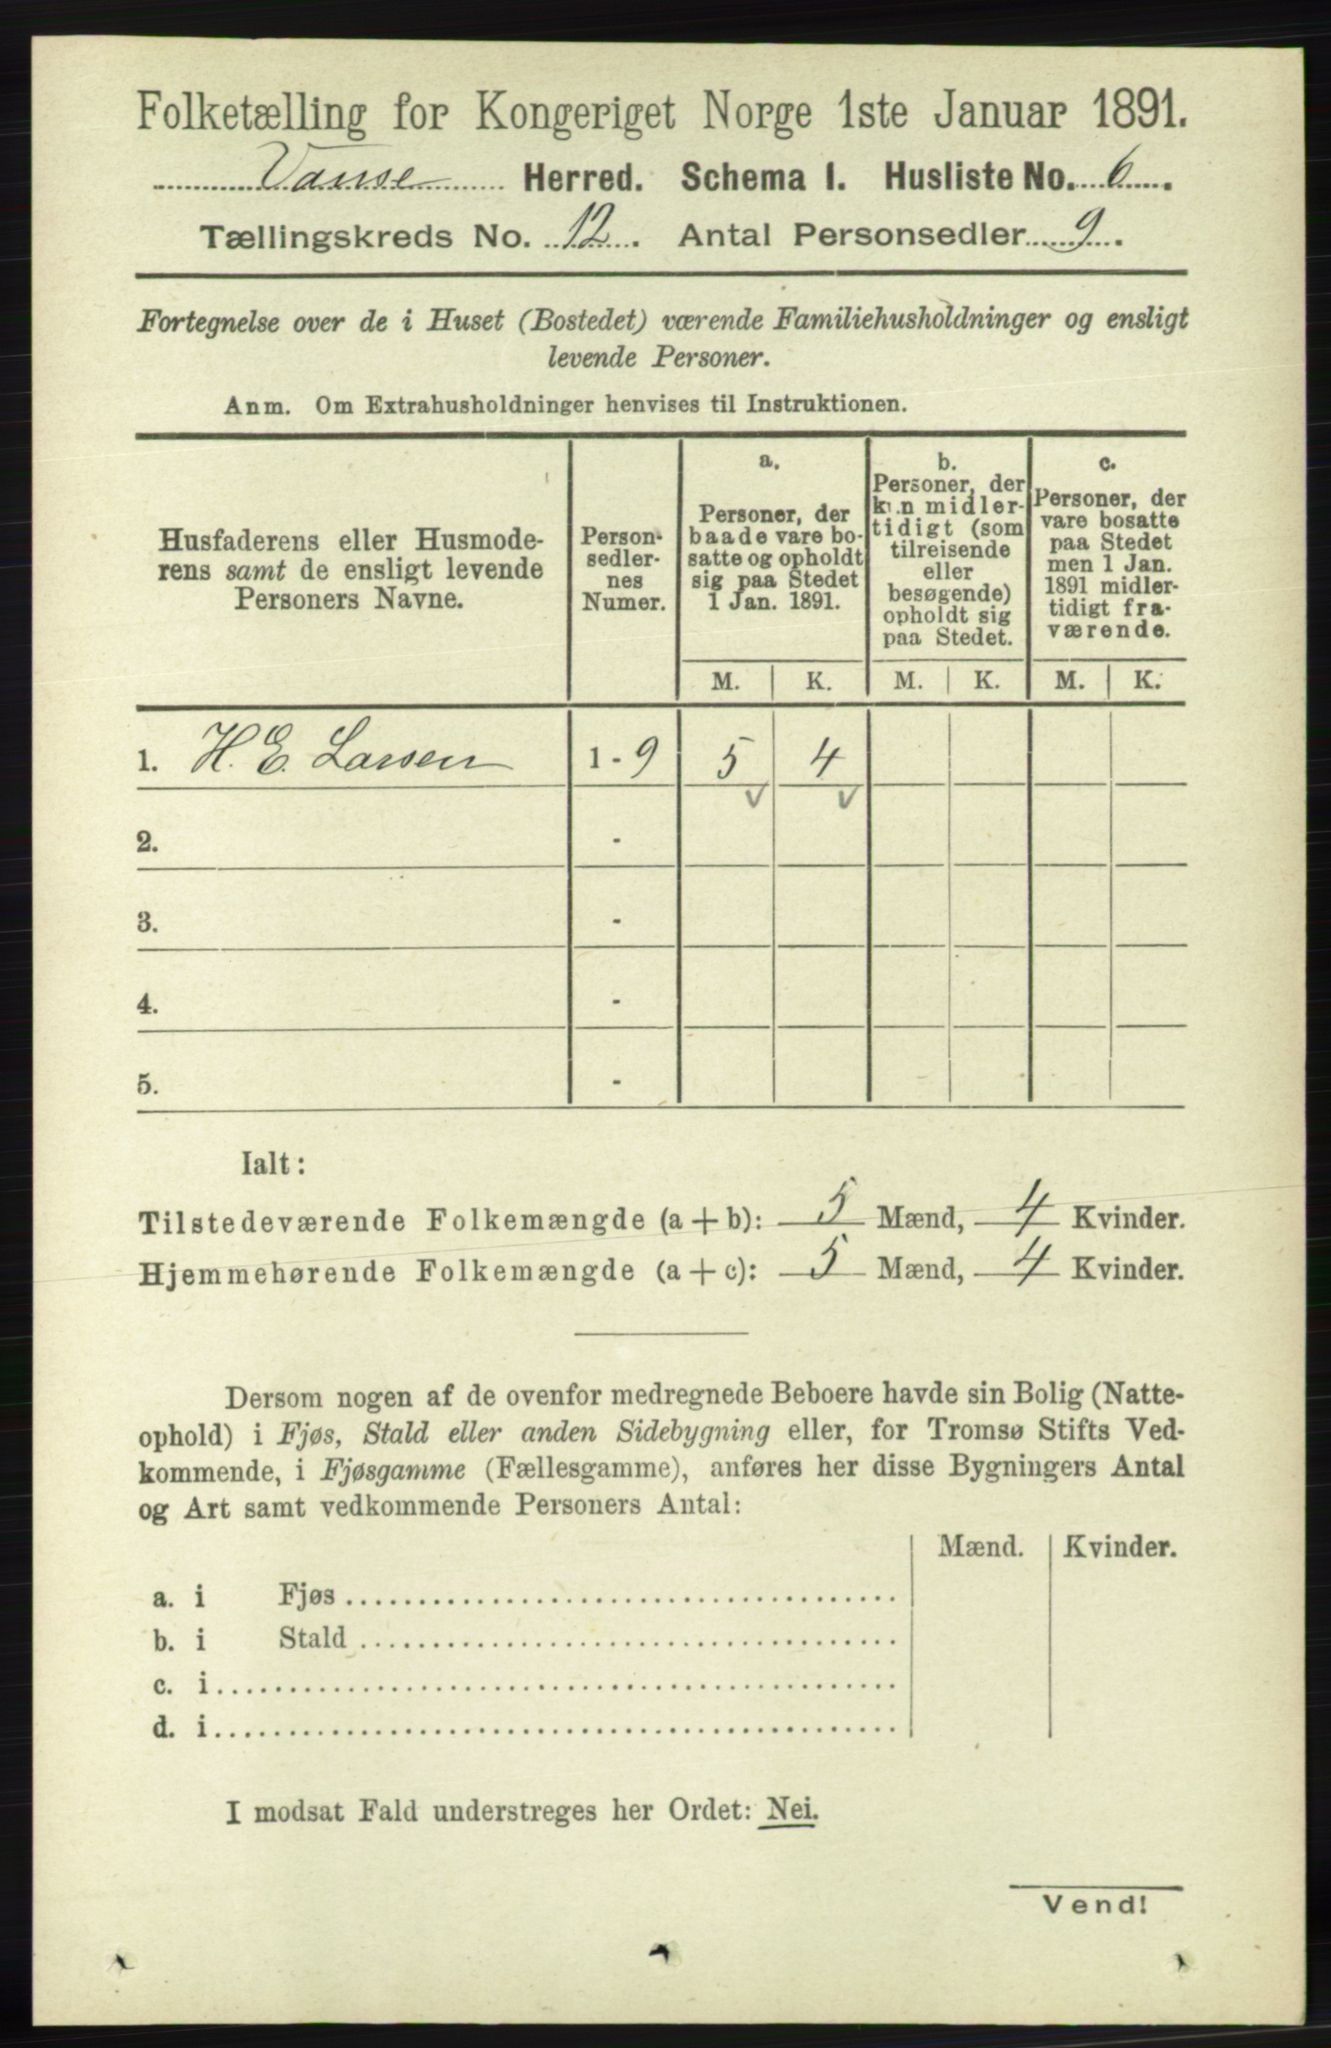 Folketælling for Kongeriget Norge 1ste Januar 1891.
Vanse Herred. Schema I. Husliste No. 6.
Tællingskreds No. 12. Antal Personsedler 9.
Fortegnelse over de i Huset (Bostedet) værende Familiehusholdninger og ensligt
levende Personer.
Anm. Om Extrahusholdninger henvises til Instruktionen.
Husfaderens eller Husmode-
rens samt de ensligt levende
Personers Navne.
Person-
sedler-
nes
Numer.
a.
Personer, der
baade vare bo-
satte og opholdt
sig paa Stedet
1 Jan. 1891.
b.
Personer, der
kun midler-
tidigt (som
tilreisende
eller
besøgende)
opholdt sig
paa Stedet.
c.
Personer, der
vare bosatte
paa Stedet
men 1 Jan.
1891 midler-
tidigt fra-
værende.
M. K. M. K. M. K.
1. H. E. Larsen 1 - 9 5 4
2. -
3. -
4. -
5. -
Ialt:
Tilstedeværende Folkemængde (a + b): 5 Mænd, 4 Kvinder.
Hjemmehørende Folkemængde (a + c): 5 Mænd, 4 Kvinder.
Dersom nogen af de ovenfor medregnede Beboere havde sin Bolig (Natte-
ophold) i Fjøs, Stald eller anden Sidebygning eller, for Tromsø Stifts Ved-
kommende, i Fjøsgamme (Fællesgamme), anføres her disse Bygningers Antal
og Art samt vedkommende Personers Antal:
Mænd. Kvinder.
a. i Fjøs
b. i Stald
c. i
d. i
I modsat Fald understreges her Ordet: Nei.
Vend!